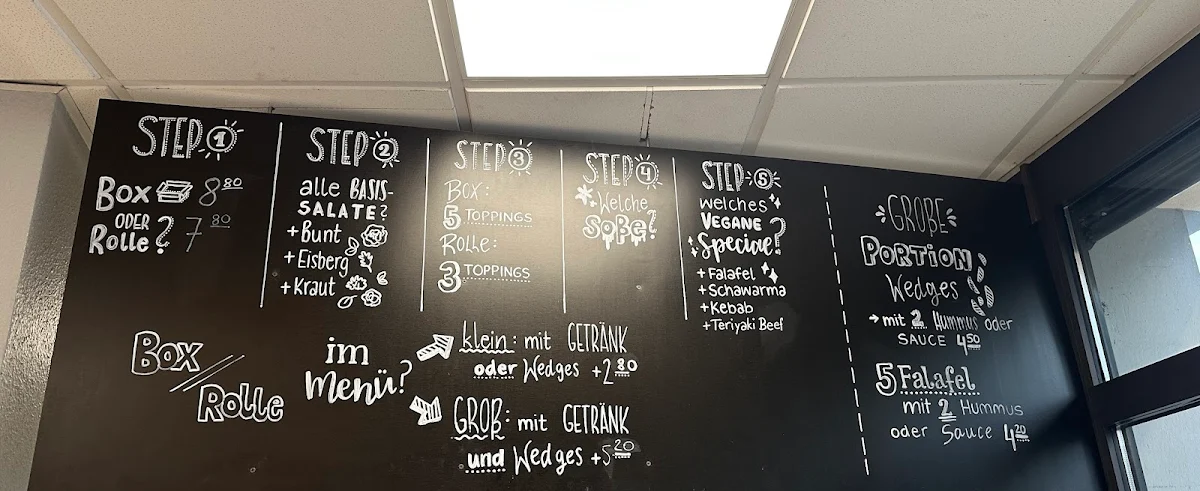 STEP 1
Box 8 80
ODER
Rolle? 7 80
STEP 2
alle BASIS-
SALATE?
+Bunt
+Eisberg
+Kraut
STEP 3
Box:
5 TOPPINGS
Rolle:
3 TOPPINGS
STEP 4
Welche
Soße?
STEP 5
welches
VEGANE
Special?
+Falafel
+Schawarma
+Kebab
+Teriyaki Beef
Box
Rolle
im
Menü?
klein: mit GETRÄNK
oder Wedges +2 80
GROß: mit GETRÄNK
und Wedges +5 20
GROßE
PORTION
Wedges
→mit 2 Hummus oder
SAUCE 4 50
5 Falafel
mit 2 Hummus
oder Sauce 4 20